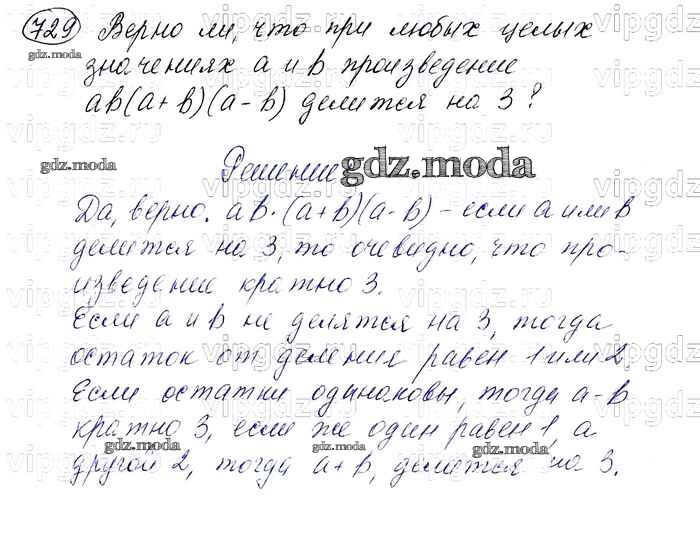 729 Верно ли, что при любых целых
значениях a и b произведение
ab(a+b)(a-b) делится на 3?
gdz.moda
gdz.moda
Решение gdz.moda
Да, верно. ab·(a+b)(a-b) - если a или b
делится на 3, то очевидно, что про-
изведение кратно 3.
Если a и b не делятся на 3, тогда
остаток от деления равен 1 или 2.
Если остатки одинаковы, тогда a-b
кратно 3, если же один равен 1, а
gdz.moda gdz.moda gdz.moda
другой 2, тогда a+b, делится на 3.